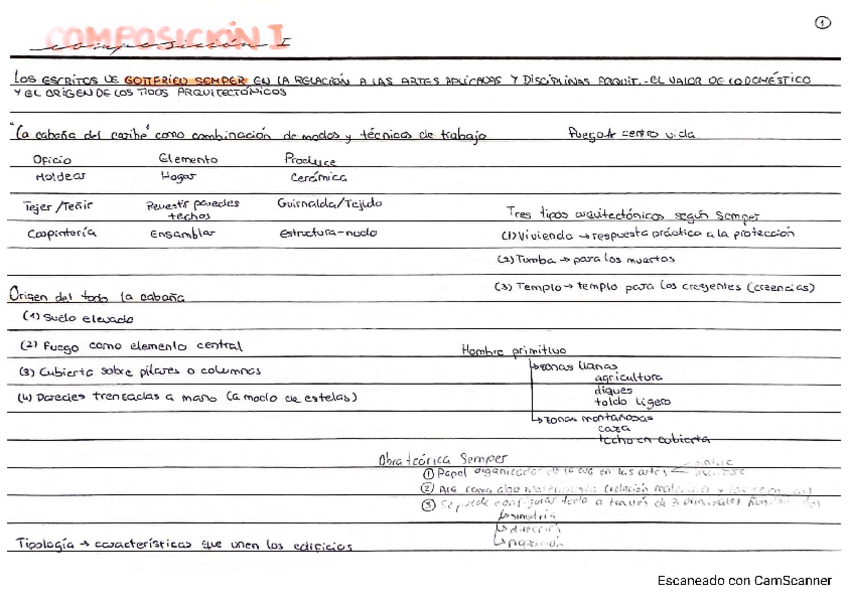 COMPOSICIÓN I
composición I
1
LOS ESCRITOS DE GOTTFRIED SEMPER EN LA RELACIÓN A LAS ARTES APLICADAS Y DISCIPLINAS ARQUIT. - EL VALOR DE LO DOMÉSTICO
Y EL ORIGEN DE LOS TIPOS ARQUITECTÓNICOS
"La cabaña del caribe" como combinación de modos y técnicas de trabajo
Fuego → centro vida
Oficio Elemento Produce
Moldear Hogar Cerámica
Tejer/Teñir Revestir paredes techos Guirnalda/Tejido
Carpintería Ensamblar Estructura-nudo
Tres tipos arquitectónicos según Semper
(1) Vivienda → respuesta práctica a la protección
(2) Tumba → para los muertos
(3) Templo → templo para los creyentes (creencias)
Origen del todo la cabaña
(1) Suelo elevado
(2) Fuego como elemento central
(3) Cubierta sobre pilares o columnas
(4) Paredes trenzadas a mano (a modo de estelas)
Hombre primitivo
zonas llanas
agricultura
diques
toldo ligero
zonas montañosas
caza
techo en cubierta
Obra teórica Semper
① Papel organizador de la en las artes
② como algo (relación
③ Se puede configurar todo a través de 3
simetría
dirección
Tipología → características que unen los edificios
Escaneado con CamScanner